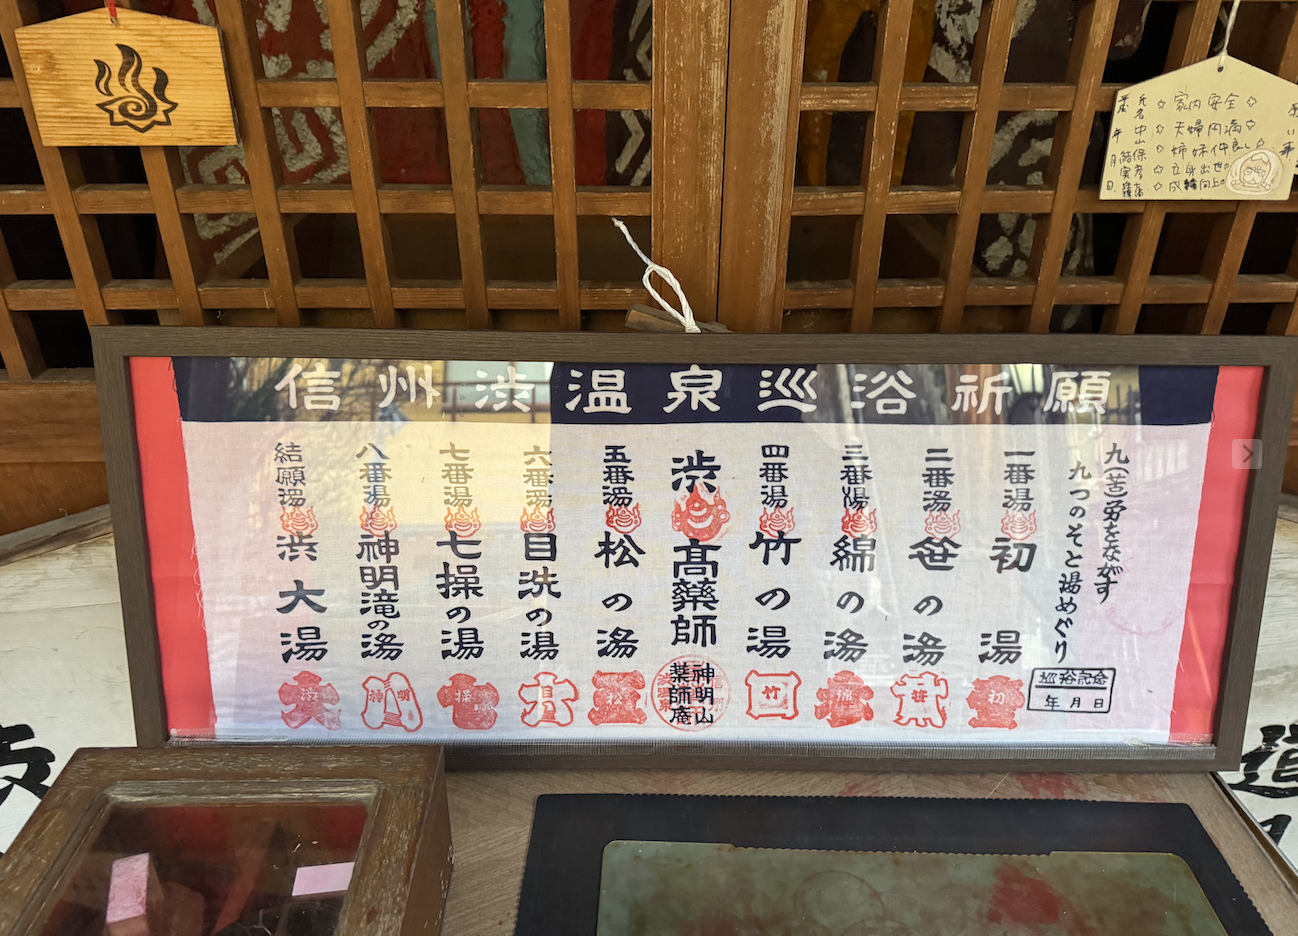 信州渋温泉巡浴祈願
九(苦)労をながす
九つのそと湯めぐり
巡浴記念
年月日
一番湯
初湯
初
二番湯
笹の湯
笹
三番湯
綿の湯
綿
四番湯
竹の湯
竹
渋
高薬師
神明山
薬師庵
五番湯
松の湯
松
六番湯
目洗の湯
目
七番湯
七操の湯
操
八番湯
神明滝の湯
神明
結願湯
渋大湯
渋
氏名
☆家内安全☆
☆夫婦円満☆
☆姉妹仲良し☆
☆立身出世
☆成績向上
年
月
日